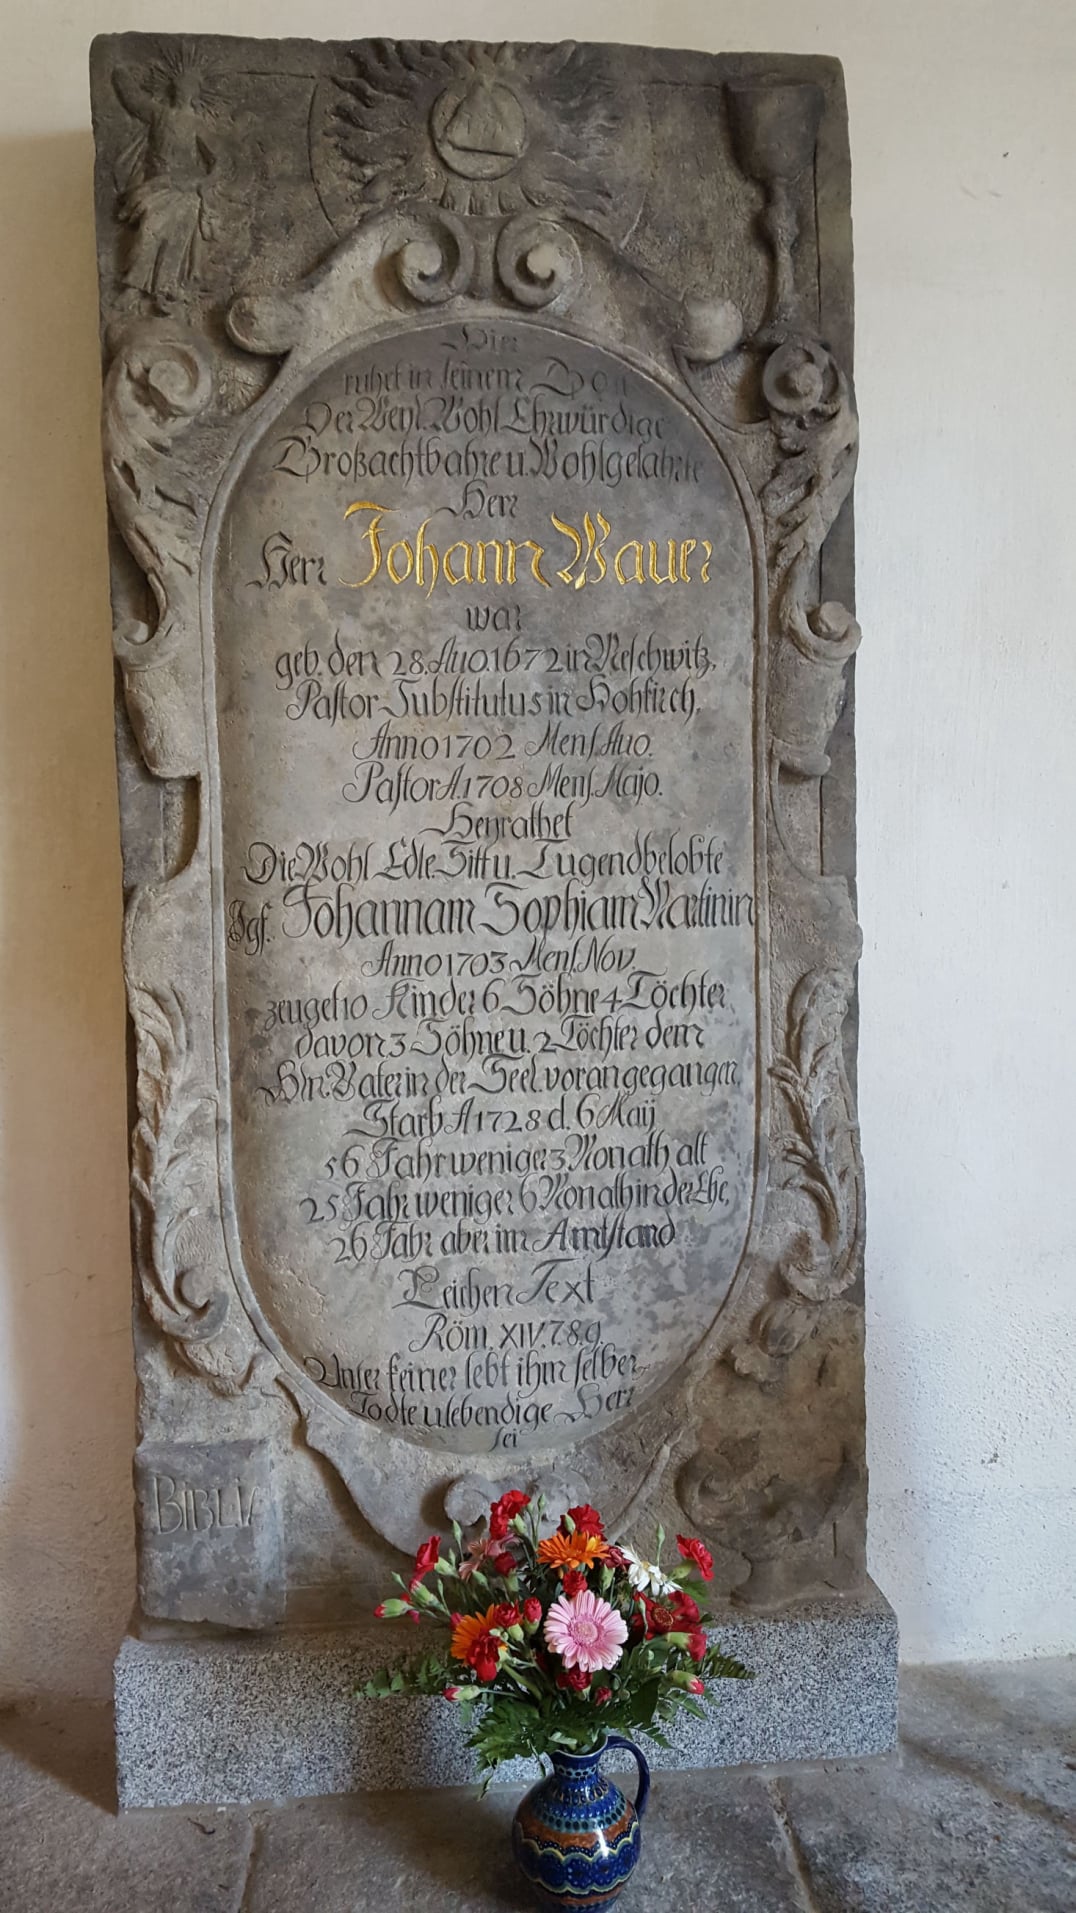 Hier
ruhet in seinem Gott
Der Weyl. Wohl Ehrwürdige
Großachtbahre u. Wohlgelahrte
Herr
Herr Johann Wauer
war
geb. den 28. Auo. 1672 in Neschwitz,
Pastor Substitutus in Hohkirch,
Anno 1702 Mens. Auo.
Pastor A. 1708 Mens. Majo.
Heyrathet
Die Wohl Edle. Sitt u. Tugendbelobte
Jgf. Johannam Sophiam Martinin
Anno 1703 Mens. Nov.
zeuget 10 Kinder 6 Söhne 4 Töchter
davon 3 Söhne u. 2 Töchter dem
Hln. Vater in der Seel. vorangegangen,
Starb A 1728 d. 6 Maij
56 Jahr weniger 3 Monath alt
25 Jahr weniger 6 Monath in der Ehe,
26 Jahr aber im Amtstand
Leichen Text
Röm. XIV. 7.8.9.
Unser keiner lebt ihm selber
Todte u lebendige Herr
sei
BIBLIA